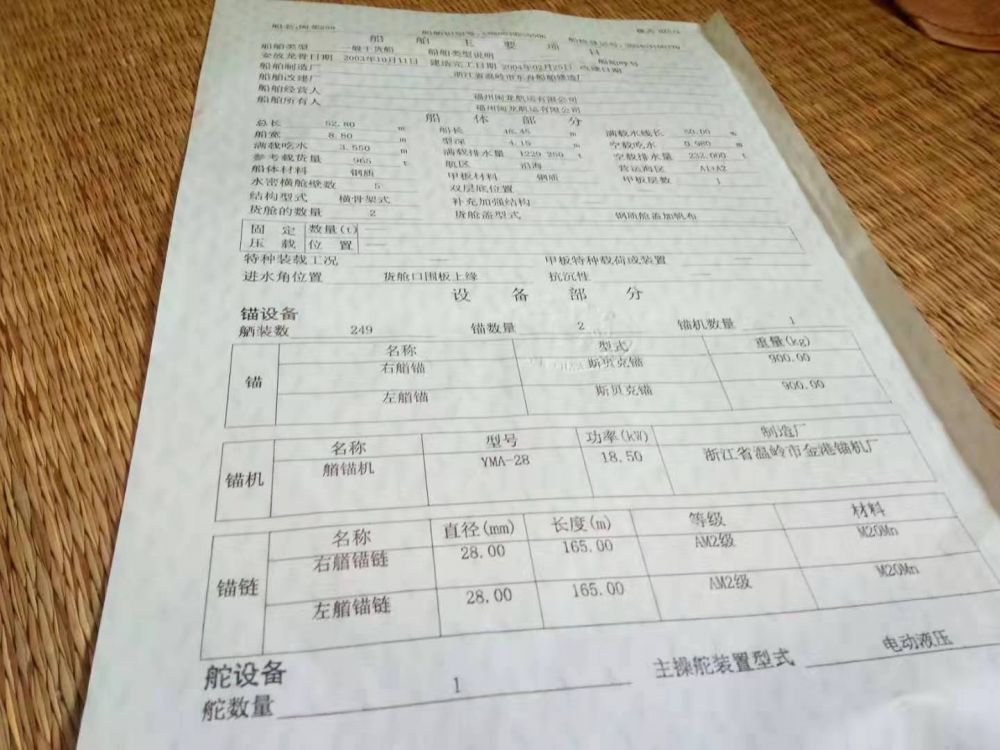 船舶主要项目
船舶类型 一般干货船 船舶类型说明 船舶呼号
安放龙骨日期 2003年10月11日 建造完工日期 2004年02月25日 改建日期
船舶制造厂 浙江省温岭市东舟船舶修造厂
船舶改建厂
船舶经营人 福州闽龙航运有限公司
船舶所有人 福州闽龙航运有限公司
船体部分
总长 52.80 m 船长 48.45 m 满载水线长 50.00 m
船宽 8.80 m 型深 4.15 m 空载吃水 0.980 m
满载吃水 3.550 m 满载排水量 1220.260 t 空载排水量 232.000 t
参考载货量 965 t 航区 沿海 营运海区 A1+A2
船体材料 钢质 甲板材料 钢质 甲板层数 1
水密横舱壁数 5 双层底位置
结构型式 横骨架式 补充加强结构 —
货舱的数量 2 货舱盖型式 钢质舱盖加帆布
固定压载 数量(t) —
位置 —
特种装载工况 — 甲板特种载荷或装置 —
进水角位置 货舱口围板上缘 抗沉性 —
设备部分
锚设备
舾装数 249 锚数量 2 锚机数量 1
锚 名称 型式 重量(kg)
右艏锚 斯贝克锚 900.00
左艏锚 斯贝克锚 900.00
锚机 名称 型号 功率(kW) 制造厂
艏锚机 YMA-28 18.50 浙江省温岭市金港锚机厂
锚链 名称 直径(mm) 长度(m) 等级 材料
右艏锚链 28.00 165.00 AM2级 M20Mn
左艏锚链 28.00 165.00 AM2级 M20Mn
舵设备
舵数量 1 主操舵装置型式 电动液压